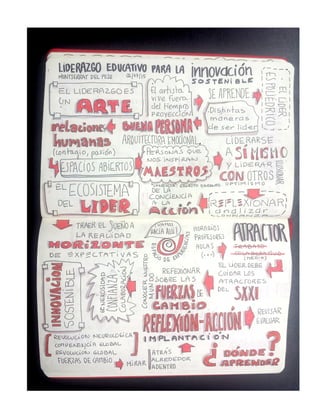 LIDERAZGO EDUCATIVO PARA LA innovación
SOSTENIBLE
MONTSERRAT DEL POZO
EL LIDERAZGO ES
UN ARTE
El artista
vive fuera
del tiempo
PROYECCIÓN
SE APRENDE
Distintas
maneras
de ser líder
EL LÍDER
relaciones
humanas
(contagio, pasión)
BUENA PERSONA
ARQUITECTURA EMOCIONAL
PERSONAS QUE
NOS INSPIRAN
MAESTROS
LIDERARSE
A SÍ MISMO
Y LIDERAR
CON OTROS
OPTIMISMO
4 ESPACIOS ABIERTOS
EL ECOSISTEMA
DEL LÍDER
DE LA
CONCIENCIA
A LA
ACCIÓN
REFLEXIONAR
analizar
TRAER EL SUEÑO A
LA REALIDAD
HORIZONTE
DE EXPECTATIVAS
HACIA
ATRACTOR
HORARIOS
PROFESORES
AULAS (...)
INNOVACIÓN
SOSTENIBLE
GENEROSIDAD
CONFIANZA
COLABORACIÓN
REFLEXIONAR
SOBRE LAS
FUERZAS DE
CAMBIO
EL LÍDER DEBE
CUIDAR LOS
ATRACTORES
DEL SXXI
REFLEXIÓN-ACCIÓN
IMPLANTACIÓN
REVISAR
EVALUAR
REVOLUCIÓN NEUROLÓGICA
CONVERGENCIA GLOBAL
REVOLUCIÓN GLOBAL
FUERZAS DE CAMBIO
MIRAR
ATRÁS
ALREDEDOR
ADENTRO
¿DÓNDE
APRENDER?